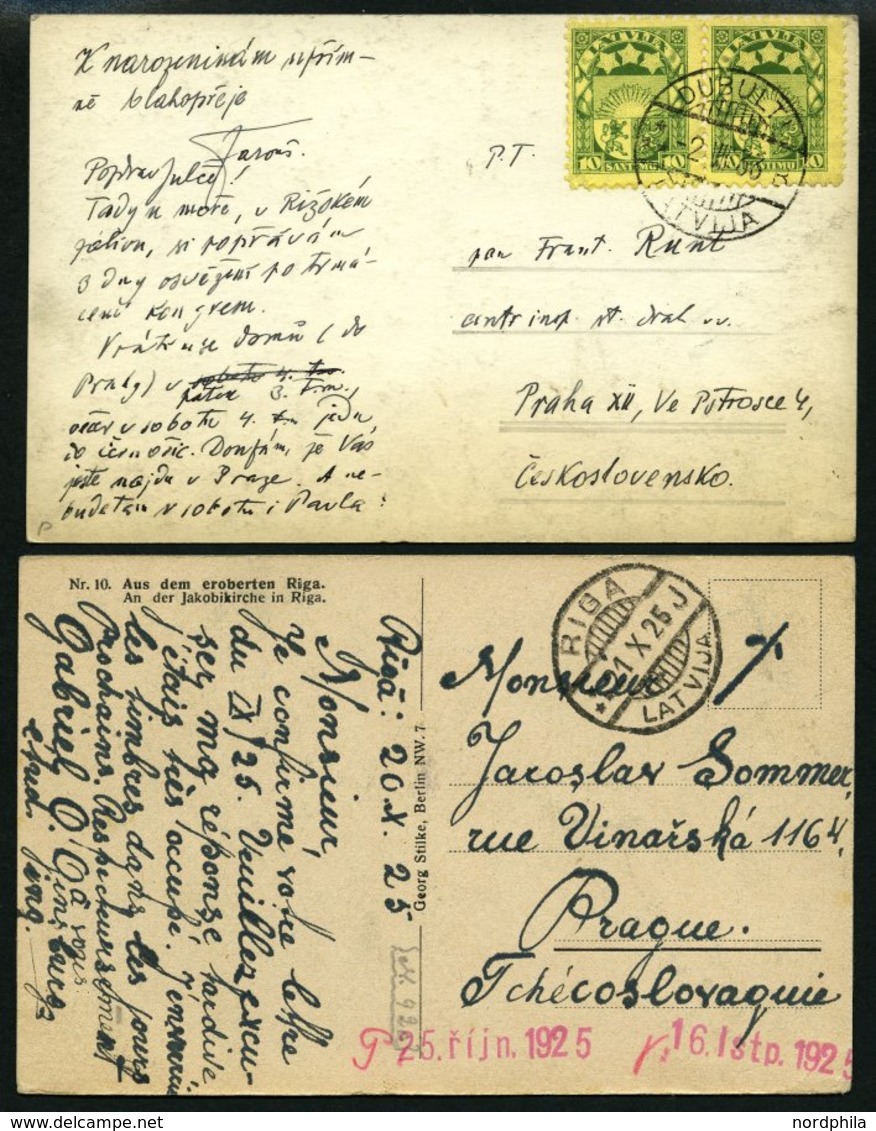 K narozeninám upřím-
ně blahopřeje
Jarouš.
Pozdrav Julče!
Tady u moře, v Rižském
zálivu, si popřávám
3 dny osvěžení po trmá-
cení kongresem.
Vrátím se domů (do
Prahy) v sobotu 4. t.m.
pátek 3. t.m.,
v sobotu 4. jedu
do Černošic. Doufám, že Vás
ještě najdu v Praze. A ne-
budeta v sobotu i Pavla?
P
LATVIJA LATVIJA
10 SANTIMU 10 10 SANTIMU 10
DUBULTI
LATVIJA
P.T.
pan Frant. Runt
centr. insp. st. drah
Praha XII, Ve Pštrosce 4,
Československo.
Nr. 10. Aus dem eroberten Riga.
An der Jakobikirche in Riga.
Rīgā: 20.X.25
Monsieur,
Je confirme votre lettre
du IX/25. Veuillez excu-
ser ma réponse tardive
j'étais très occupé. J'enverrai
les timbres dans les jours
prochains. Respectueusement
à vous
Gabriel O. Ginsburg
stud. ing.
Georg Stilke, Berlin NW. 7
RIGA
21 X 25 J
LATVIJA
Monsieur
Jaroslav Sommer,
rue Vinařská 1164,
Prague.
Tchécoslovaquie
P 25. říjn. 1925
16. listp. 1925
nordphila